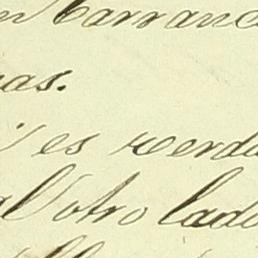 barranc
as.
es verda
al otro lado